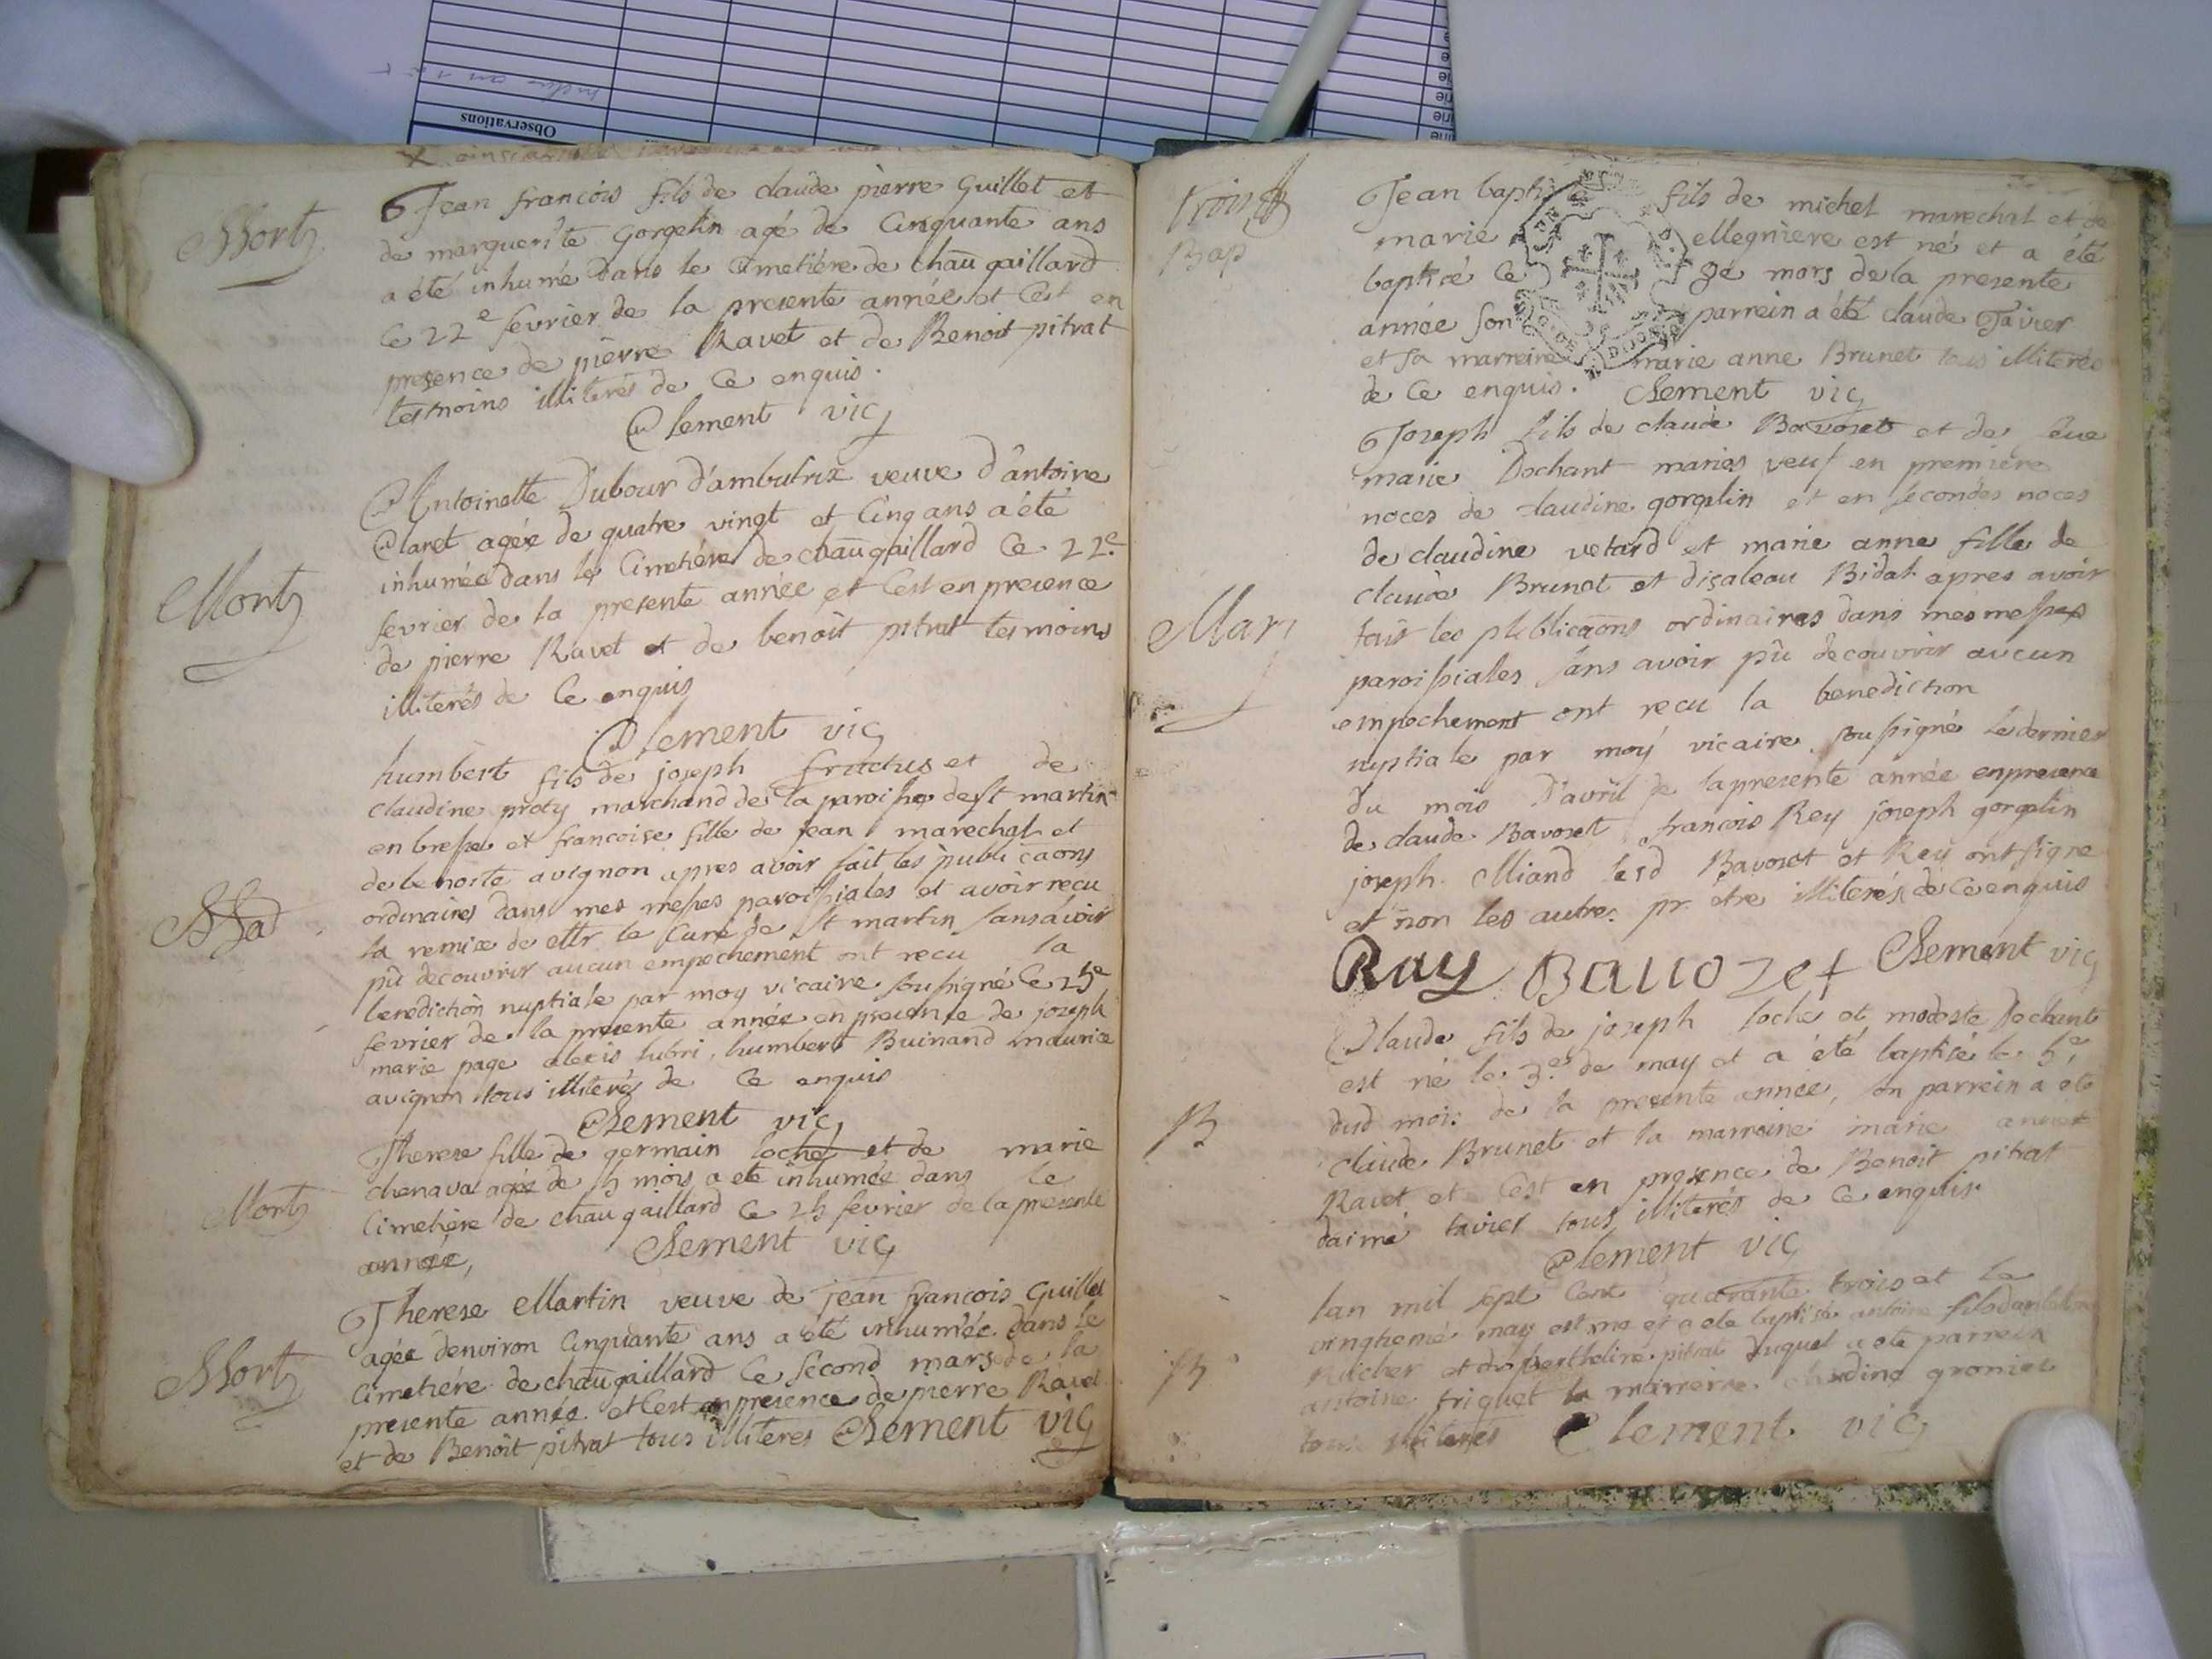 Observations
Mort
Jean francois fils de claude pierre Guillet et
de marguerite Gorgelin agé de Cinquante ans
a été inhumé dans le Cimetiére de chaugaillard
Ce 22e fevrier de la presente année et Cest en
presence de pierre Ravet et de Benoit pitrat
tesmoins illiterés de Ce enquis.
Clement vic
Mort
Antoinette Dubour d'ambutrix veuve d'antoine
Claret agée de quatre vingt et Cinq ans a été
inhumée dans le Cimetiére de chaugaillard Ce 22e
fevrier de la presente année et Cest en presence
de pierre Ravet et de benoit pitrat tesmoins
illiterés de Ce enquis
Clement vic
humbert fils de joseph fructus et de
claudine proty marchand de la paroisse de st martin
en bresse et francoise fille de jean marechal et
de benoite avignon apres avoir fait les publicaons
ordinaires dans mes messes paroissiales et avoir recu
la remise de Mr le Curé de St martin sans avoir
pû decouvrir aucun empechement ont recu la
benediction nuptiale par moy vicaire soussigné Ce 25e
fevrier de la presente année en presence de joseph
marie page alexis lubri, humbert Buinand maurice
avignon tous illiterés de Ce enquis
Clement vic
Mort
Therese fille de germain loché et de marie
chenava agée de 5 mois a eté inhumée dans le
Cimetière de chaugaillard Ce 25 fevrier de la presente
année, Clement vic
Mort
Therese Martin veuve de jean francois Guillet
agée denviron Cinquante ans a été inhumée dans le
Cimetiére de chaugaillard Ce second mars de la
presente année et Cest en presence de pierre Ravet
et de Benoit pitrat tous illiteres Clement vic
Bap
Jean baptiste fils de michel marechal et de
marie ellegniere est né et a été
baptisé Ce mars de la presente
année son parrein a été claude Tavier
et sa marreine marie anne Brunet tous illiterés
de Ce enquis. Clement vic
Mar
Joseph fils de claude Bavozet et de
marie Dochant mariés veuf en premiere
noces de claudine gorgelin et en secondes noces
de claudine vetard et marie anne fille de
claude Brunet et disabeau Bidat apres avoir
fait les publicaons ordinaires dans mes messes
paroissiales sans avoir pû decouvrir aucun
empechement ont recu la benediction
nuptiale par moy vicaire soussigné le dernier
du mois D'avril de la presente année en presence
de claude Bavozet francois Rey joseph gorgelin
joseph Miand lesd Bavozet et Rey ont signé
et non les autres pr etre illiterés de Ce enquis
Ray Bauozet Clement vic
B
Claude fils de joseph loche et modeste Dochant
est né le 3e de may et a été baptisé le 5e
dud mois de la presente année, son parrein a été
claude Brunet et la marreine marie anne
Ravet et Cest en presence de Benoit pitrat
daimé tavier tous illiterés de Ce enquis
Clement vic
B
lan mil sept Cent quarante trois et le
vingtiemé may est né et a eté baptisé antoine fils
Richer et de berthelire pitrat duquel a eté parrein
antoine friquet la marreine claudine gronier
tous illiterés Clement vic